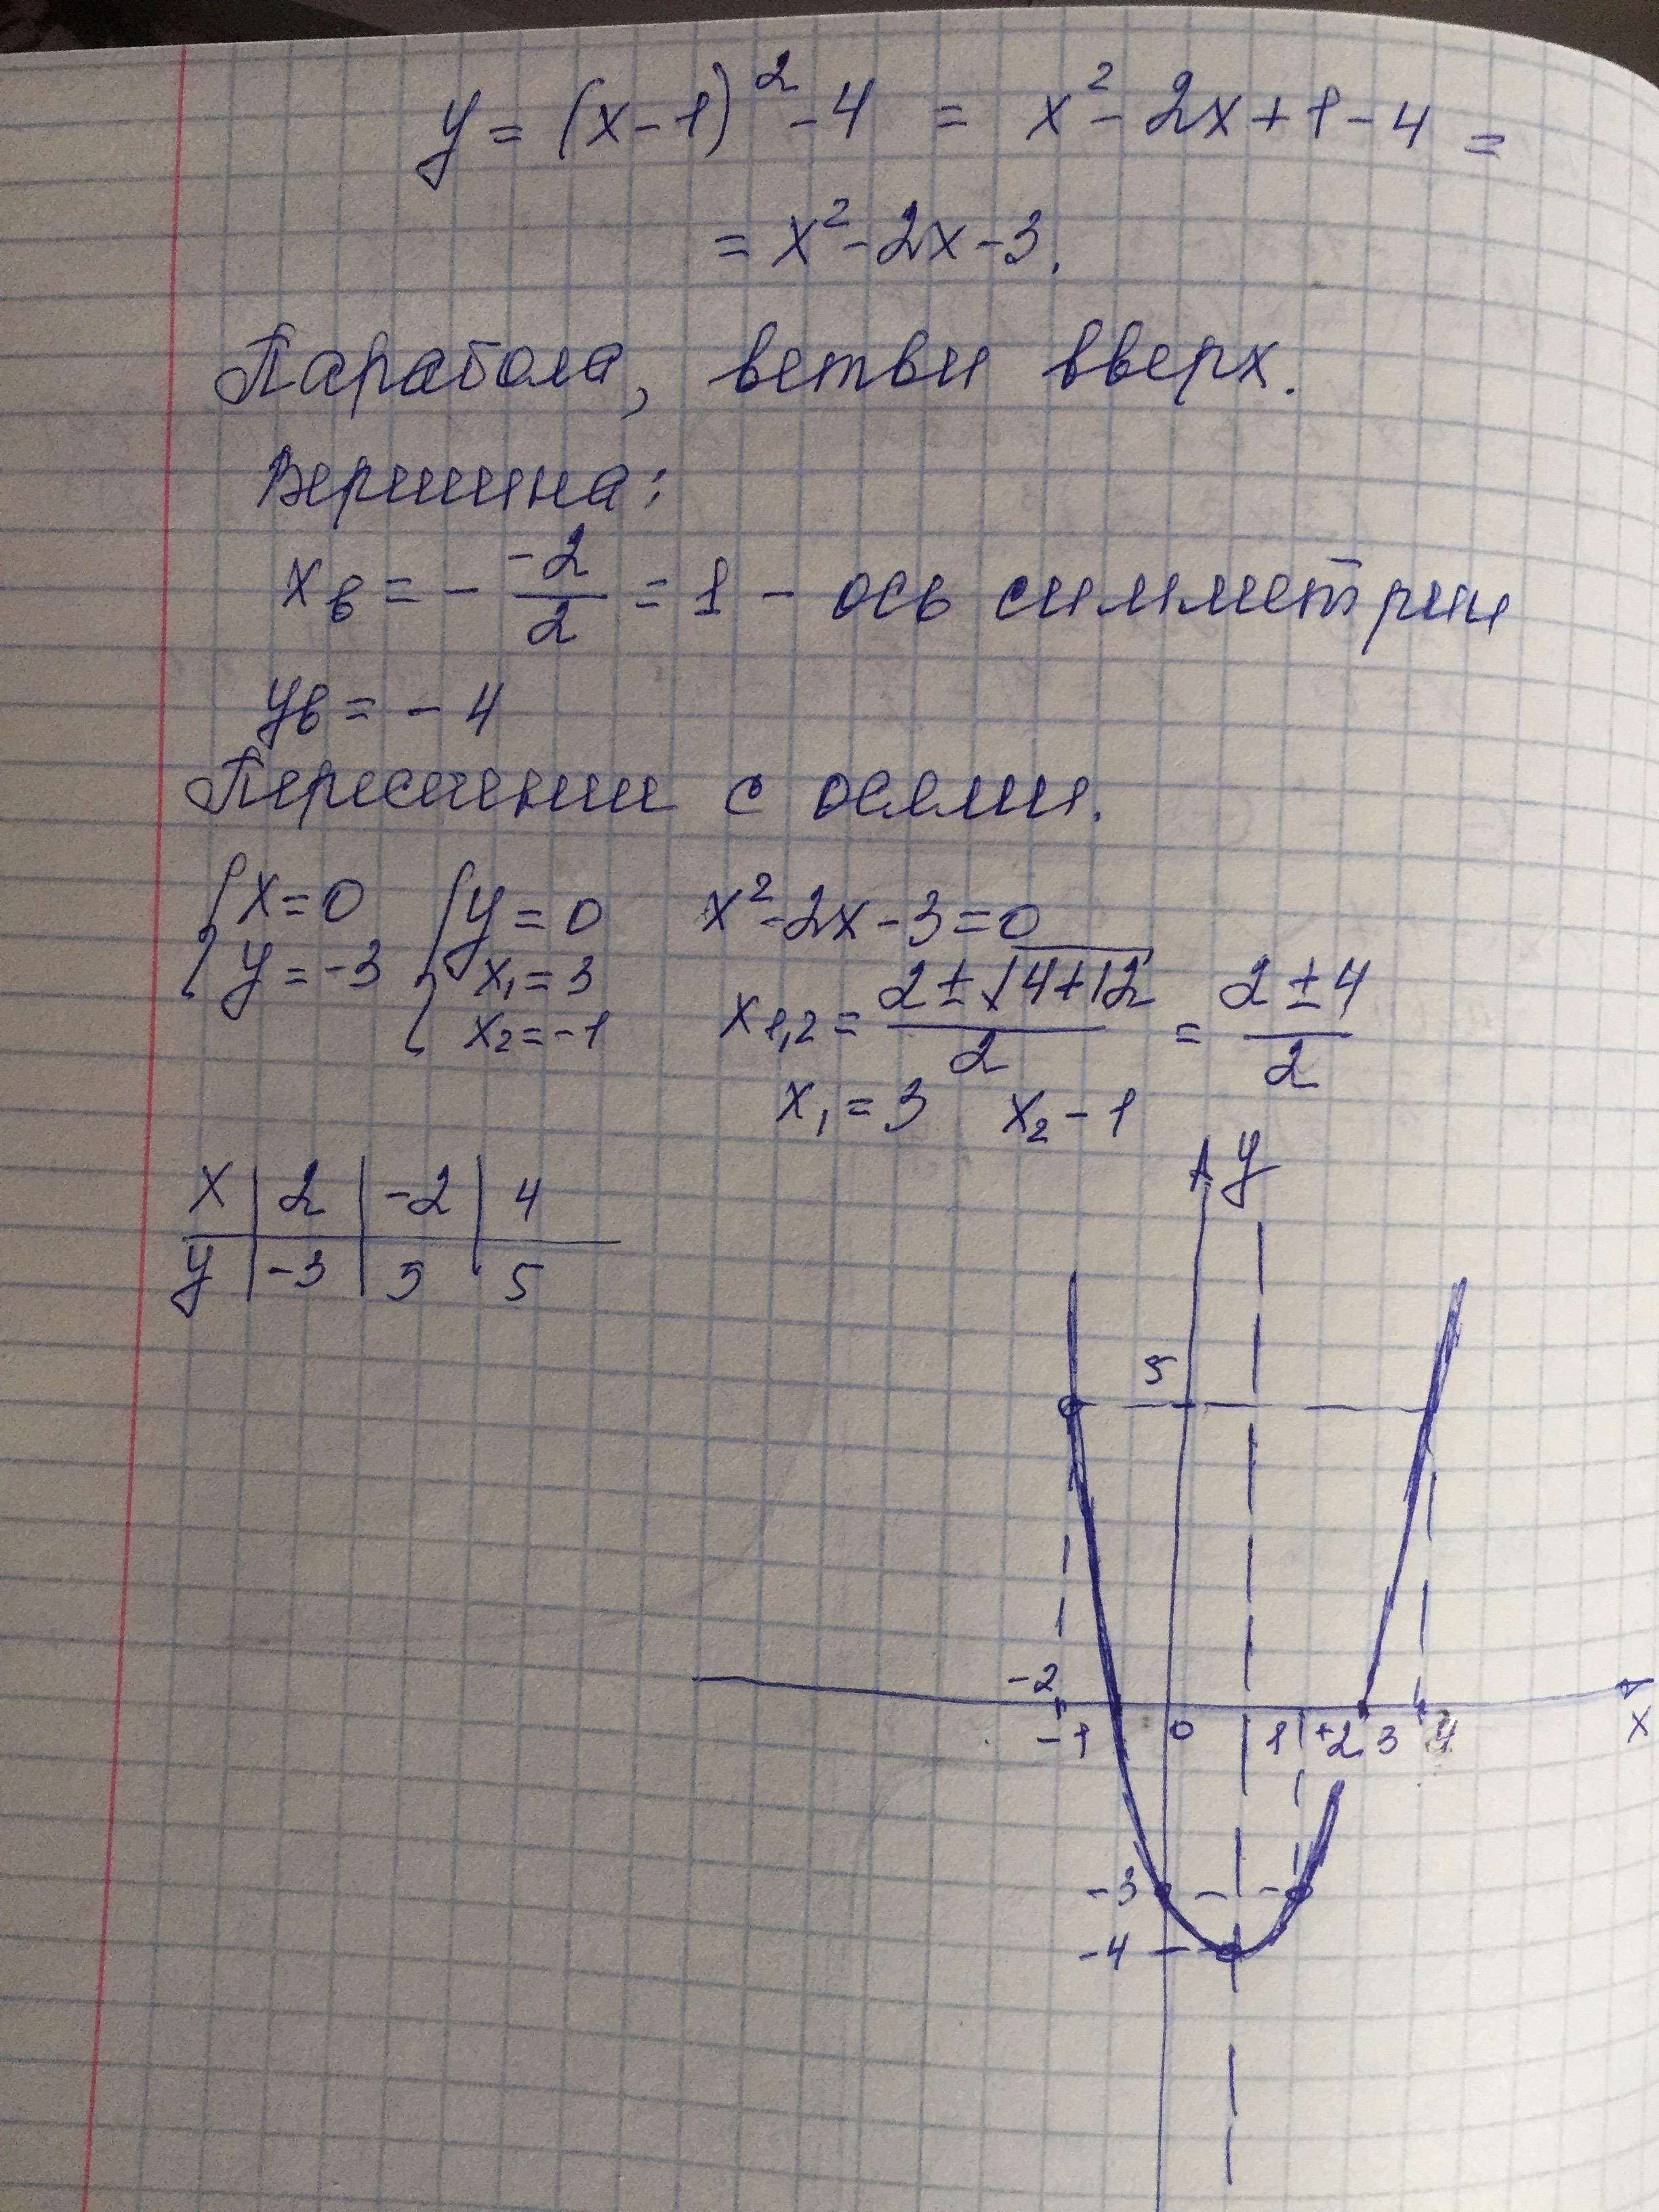 y = (x-1)² - 4 = x² - 2x + 1 - 4 =
= x² - 2x - 3.
Парабола, ветви вверх.
Вершина:
xв = - -2/2 = 1 - ось симметрии
yв = - 4
Пересечении с осями.
{x = 0 {y = 0 x² - 2x - 3 = 0
y = -3 x₁ = 3 x₁,₂ = (2 ± √4+12)/2 = (2 ± 4)/2
x₂ = -1
x₁ = 3 x₂ - 1
x | 2 | -2 | 4
y | -3 | 5 | 5
y
5
-2
-1 0 1 +2 3 4 x
-3
-4